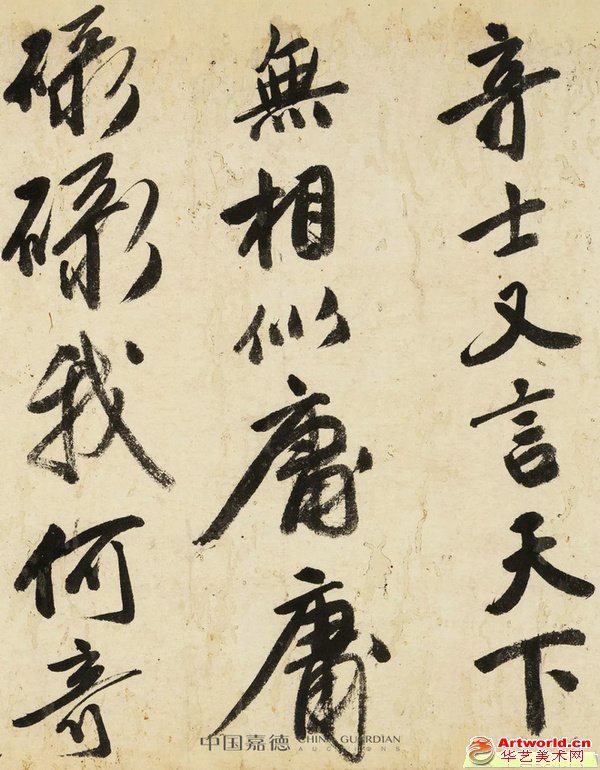 竒士又言天下
無相似庸庸
碌碌我何竒
中国嘉德 CHINA GUARDIAN
AUCTIONS
Artworld.cn
华艺美术网